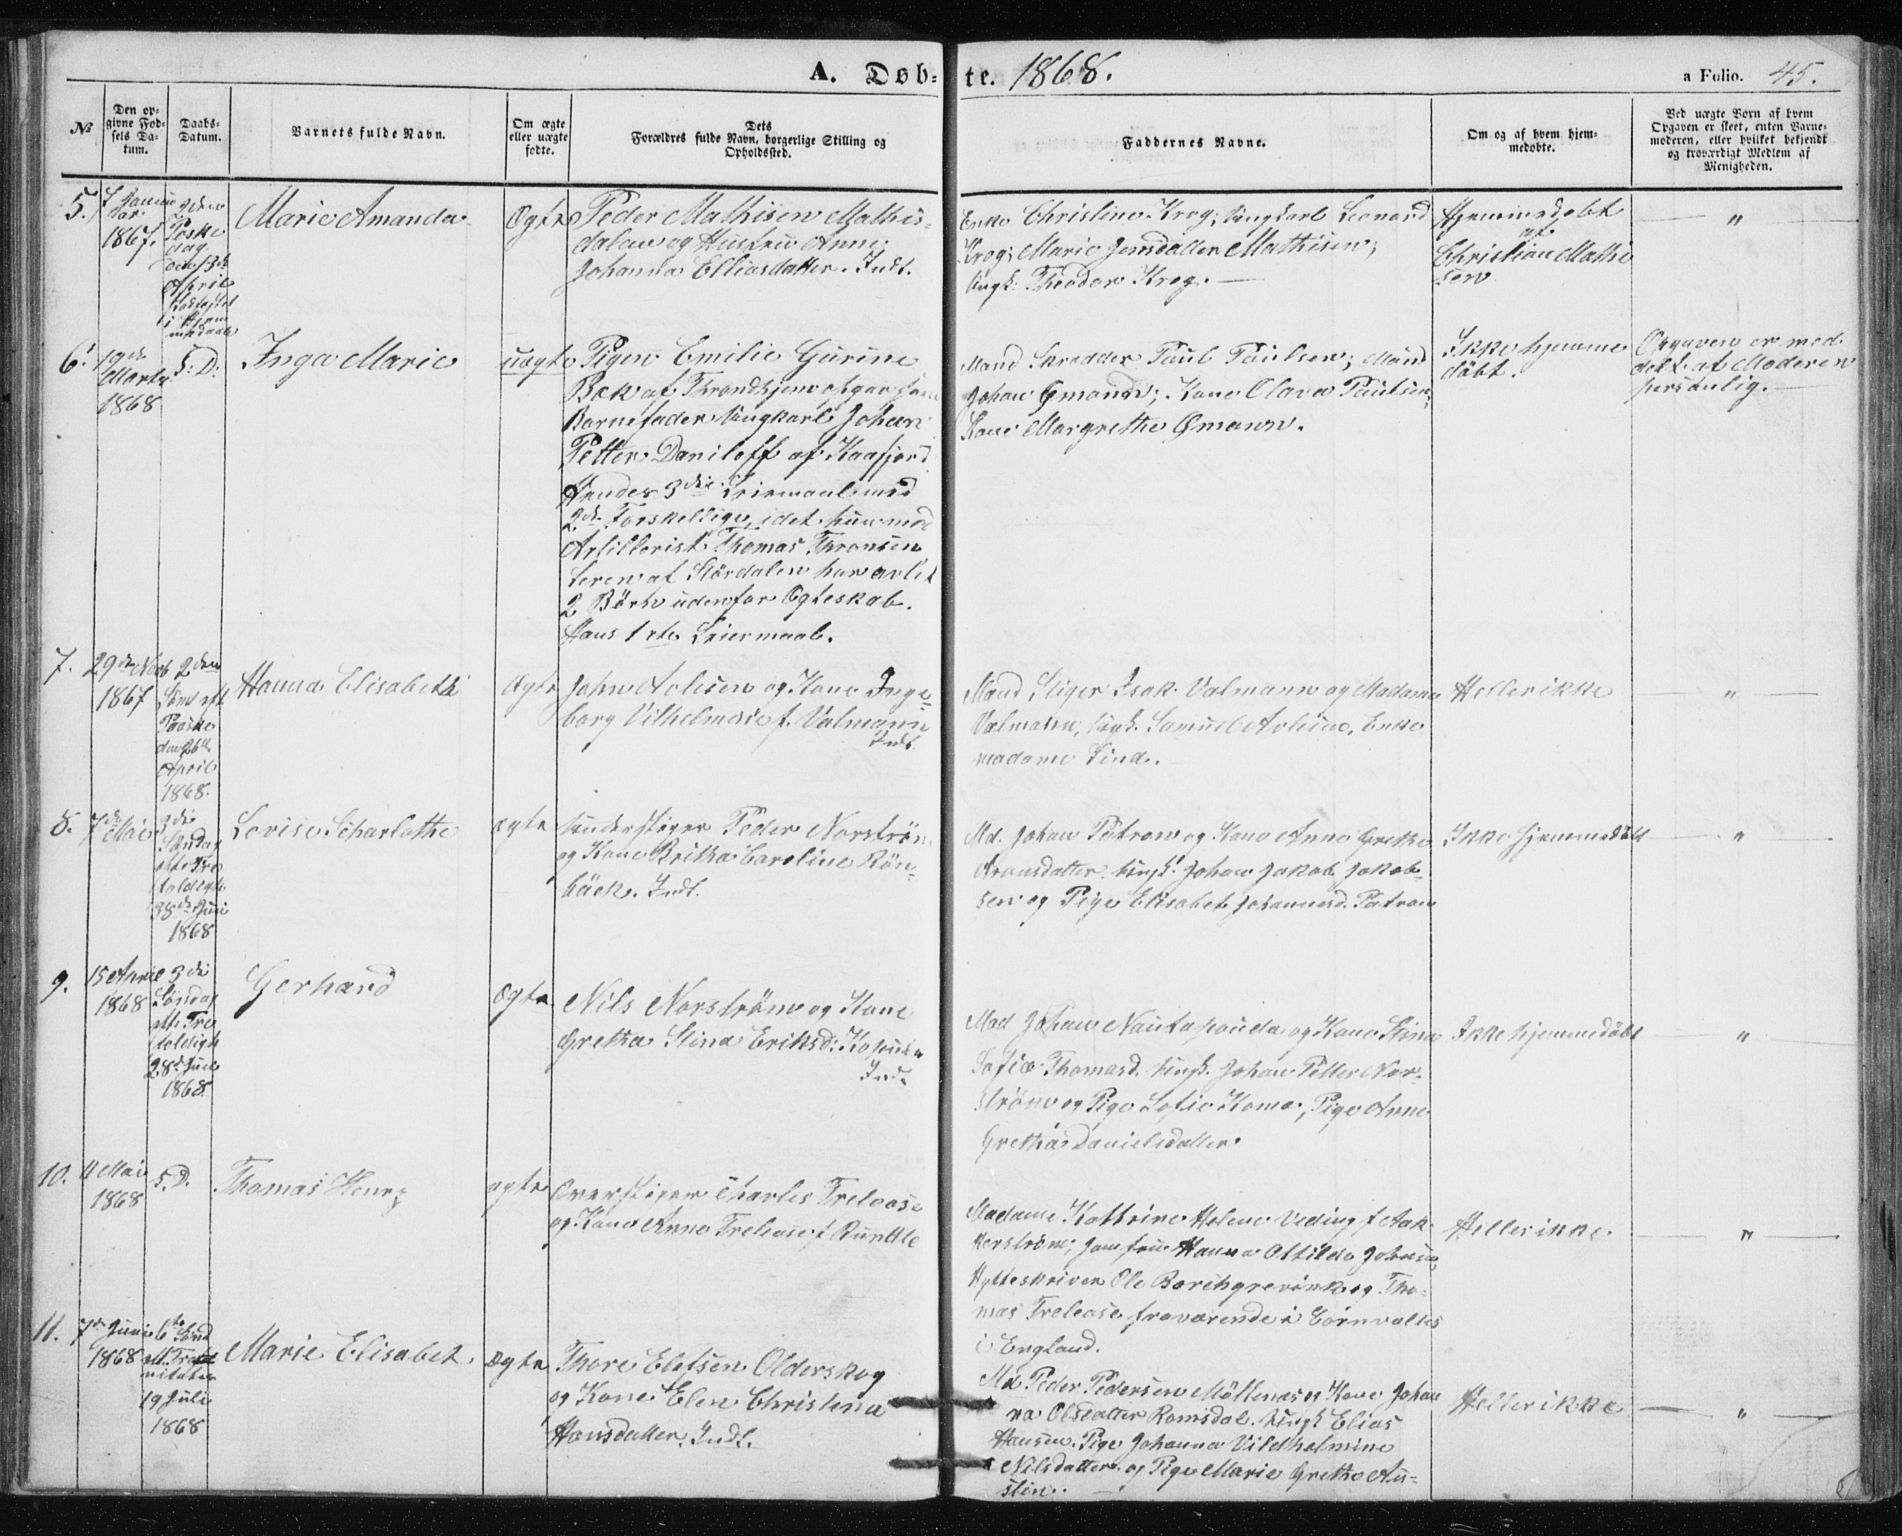 A. Døb-
te. 1868.
a Folio. 45.
№
Den op-
givne Fød-
sels Da-
tum.
Daabs-
Datum.
Barnets fulde Navn.
Om ægte
eller uægte
fødte.
Dets
Forældres fulde Navn, borgerlige Stilling og
Opholdssted.
Faddernes Navne.
Om og af hvem hjem-
medøbte.
Ved uægte Børn af hvem
Opgaven er skeet, enten Barne-
moderen, eller hvilket bekjendt
og troværdigt Medlem af
Menigheden.
5.
7 Janu
ar
1867.
2den
Paaske
dag
den 13de
April
i Hjem
Marie Amanda
Ægte
Peder Mathisen Mathis-
dalen og Hustru Anne
Johanna Elliasdatter. Indt.
Enke Christine Krog; Ungkarl Leonard
Krog; Marie Jensdatter Mathisen;
Ungk: Theodor Krog. —
Hjemmedøbt
af
Christian Mathi
sen
— " —
6.
19de
Marts
1868
S: D:
Inga Marie
uægte
Pigen Emilie Gurine
Bak af Throndhjem opgav som
Barnefader Ungkarl Johan
Petter Daniloff af Kaafjord
Hendes 3die Leiermaal med
2de Forskellige, idet hun med
Artillerist Thomas Thronsen
Leren af Størdalen har avlet
2 Børn udenfor Ægteskab.
Hans 1ste Leiermaal.
Mand Skredder Paul Paulsen; Mand
Johan Ømann; Kone Clara Paulsen;
Kone Margrethe Ømann.
Ikke hjemme
døbt.
Opgaven er med
delt af Moderen
personlig.
7.
29de Novb
1867
2den
Sønd eft
Paaske
den 26de
April
1868.
Hanna Elisabeth
Ægte
John Aolisen og Kone Inge
borg Vilhelmine f. Valmann
Indt.
Mand Stiger Isak Valmann og Madame
Valmann, Ungk. Samuel Aolisen, Enke
madame Lind.
Heller ikke
— " —
8.
7de
Mai
3die
Søndag
efter Tre
foldigh
28de Juni
1868
Lovise Scharlothe
Ægte
Understiger Peder Norstrøm
og Kone Britha Caroline Rön-
bäck. Indt.
Md. Johan Patron og Kone Anne Grethe
Aronsdatter. Ungk: Johan Jakob Jakob-
sen og Pige Elisabet Johannesd. Patron
Ikke hjemmedøbt
— " —
9.
15 April
1868
3die
Søndag
eft. Tre
foldigh
28de Juni
1868.
Gerhard
Ægte
Nils Norstrøm og Kone
Gretha Stina Eriksd: Kopukka
Indt
Mad Johan Nautapouda og Kone Stina
Sofie Thomasd. Ungk. Johan Petter Nor-
strøm og Pige Sofie Koma, Pige Anne
Gretha Danielsdatter.
Ikke hjemmedøbt
— " —
10.
11 Mai
1868
S. D.
Thomas Henry
Ægte
Overstiger Charles Trelease
og Kone Anne Trelease f. Rundtle
Madame Kathrine Helene Veding f Aak-
kerstrøm; Jomfru Hanna Ottilde Johnsen
Hytteskriver Ole Borchgrevink og Tho-
mas Trelease fraværende i Cornvalles
i England.
Heller ikke
— " —
11.
7de Juni
1868
6te Sønd
eft. Tri
nitatis
19 Juli
1868
Marie Elisabet
Ægte
Thore Elefsen Olderskog
og Kone Elen Christina
Hansdatter. Indt.
Md Peder Pedersen Møllenæs og Kone Johan
na Olsdatter Romsdal. Ungk Elias
Hansen. Pige Johanna Vildhelmine
Nilsdatter og Pige Marie Grethe Au-
stin.
Heller ikke
— " —